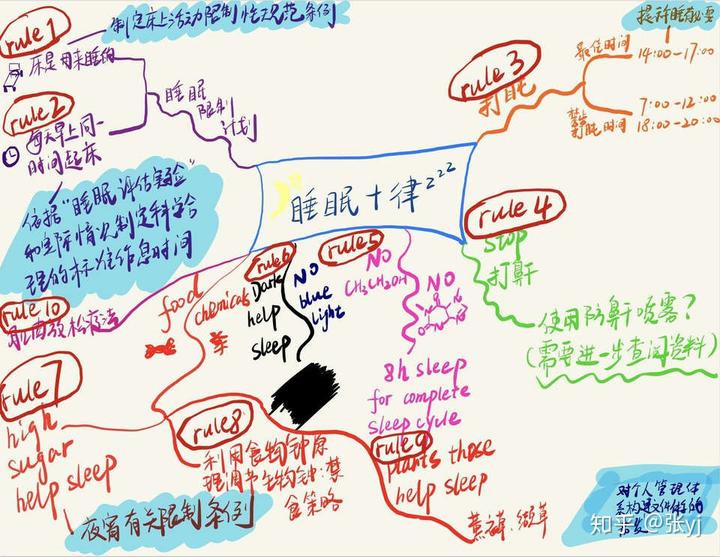 rule 1
制定床上活动限制性规范条例
床是用来睡的
rule 2
每天早上同一
时间起床
睡眠
限制
计划
依据"睡眠评估实验"
和实际情况制定科学合
理的标准作息时间
rule 3
打盹
提神醒脑必要
最佳时间
14:00-17:00
禁止
打盹时间
7:00-12:00
18:00-20:00
睡眠十律zzz
rule 4
stop
打鼾
使用防鼾喷雾?
(需要进一步查阅资料)
rule 5
NO
CH3CH2OH
NO
8h sleep
for complete
sleep cycle
rule 6
Dark
help
sleep
NO
blue
light
rule 10
肌肉放松疗法
food
chemicals
药
rule 7
high
sugar
help sleep
夜宵有关限制条例
rule 8
利用食物钟原
理调节生物钟:禁
食策略
rule 9
plants those
help sleep
薰衣草、缬草
对个人管理体
系构建文件的
知乎 @张yj